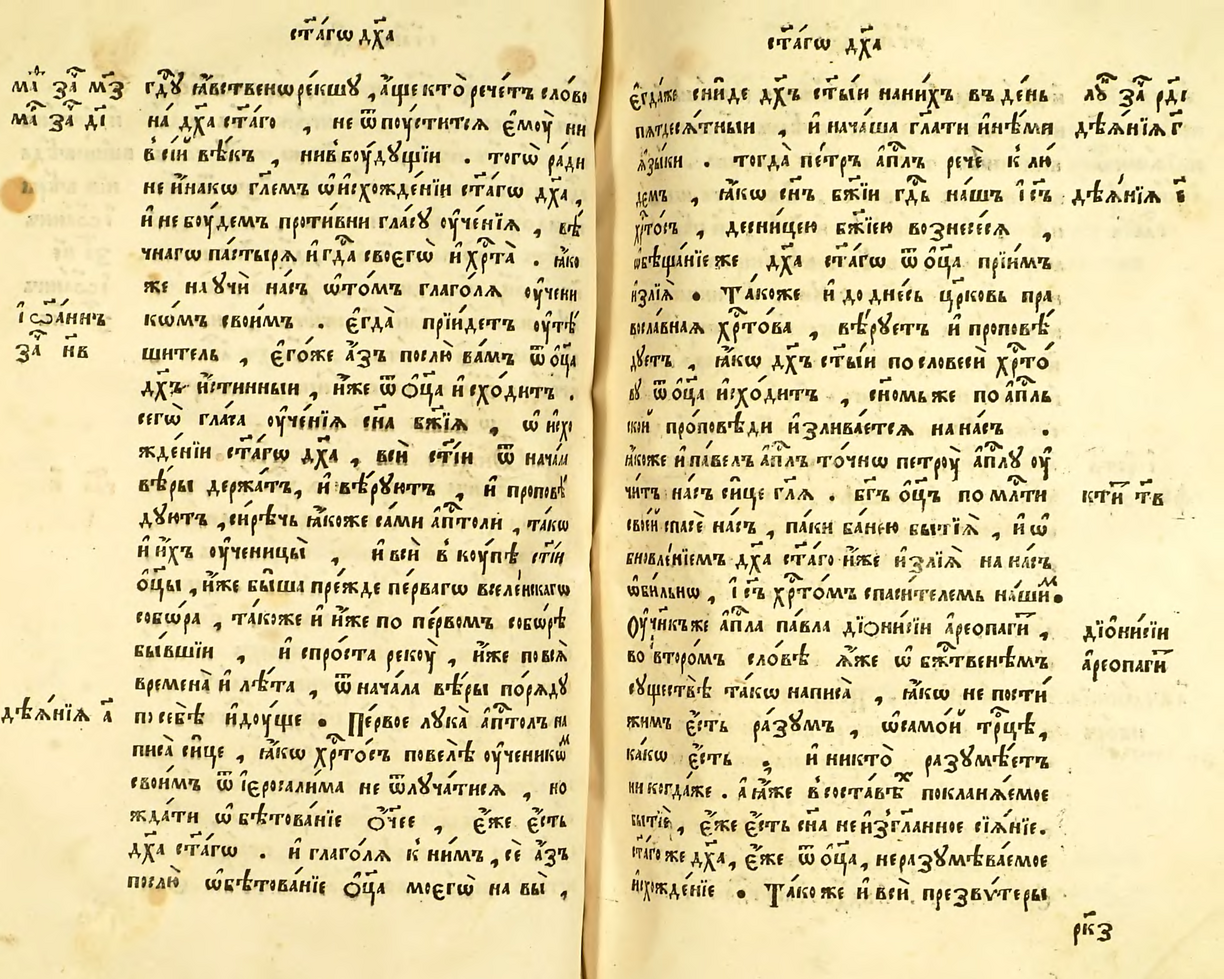 ст҃а́гѡ дх҃а
гдⷭ҇ꙋ ꙗ҆́вственѡ ре́кшꙋ , а҆́ще кто̀ рече́тъ сло́во
на̀ дх҃а ст҃а́го , не ѿпоу́стится є҆моу̀ ни
в се́й вѣ́къ , ни в боу́дꙋщїи . тогѡ̀ ра́ди
не и҆на́кѡ гл҃емъ ѡ҆ и҆схожде́нїи ст҃а́гѡ дх҃а ,
и҆ не боу́демъ проти́вни гла́сꙋ оу҆че́нїѧ , вѣ́
чнагѡ па́стырѧ и҆ гдⷭ҇а своегѡ̀ и҆ хрⷭ҇та̀ . ꙗ҆́ко
же наꙋчѝ на́съ ѡ҆ то́мъ глаго́лѧ оу҆чени
кѡ́мъ свои́мъ . є҆гда̀ прїи́детъ оу҆тѣ́
шитель , є҆го́же а҆́зъ послю̀ ва́мъ ѿ ѻ҆ц҃а̀
дх҃ъ и҆́стинныи , и҆́же ѿ ѻ҆ц҃а̀ и҆схо́дитъ .
сегѡ̀ гла́са оу҆че́нїѧ сн҃а бж҃їѧ , ѡ҆ и҆схо
жде́нїи ст҃а́гѡ дх҃а , всѝ ст҃і́и ѿ нача́ла
вѣ́ры держа́тъ , и҆ вѣ́рꙋютъ , и҆ проповѣ́
дꙋютъ , си́рѣчь ꙗ҆́коже са́ми а҆пⷭ҇толи , та́кѡ
и҆ и҆́хъ оу҆ченицы̀ , и҆ всѝ в коу́пѣ ст҃і́и
ѻ҆ц҃ы̀ , и҆́же бы́ша пре́жде пе́рвагѡ вселе́нскагѡ
собѡ́ра , та́коже и҆ и҆́же по пе́рвомъ собѡ́рѣ
бы́вшїи , и҆ спро́ста рекоу̀ , и҆́же по всѧ̀
времена̀ и҆ лѣ́та , ѿ нача́ла вѣ́ры по́рѧдꙋ
по себѣ̀ и҆доу́ще . Пе́рвое лꙋка̀ а҆пⷭ҇толъ на
писа̀ си́це , ꙗ҆́кѡ хрⷭ҇то́съ повелѣ̀ оу҆ченикѡⷨ
свои́мъ ѿ і҆ерⷭ҇оали́ма не ѿлꙋча́тисѧ , но
жда́ти ѡ҆бѣтова́нїе ѻ҆́ч҃ее , є҆́же є҆́сть
дх҃а ст҃а́гѡ . и҆ глаго́лѧ к ни́мъ , сѐ а҆́зъ
послю̀ ѡ҆бѣтова́нїе ѻ҆ц҃а̀ моегѡ̀ на вы̀ ,
маⷴ҇ заⷱ҇ мз҃
маⷴ҇ заⷱ҇ дı҃
і҆ѡ҃а́ннъ
заⷱ҇ нв
дѣѧ́нїѧ а҃
ст҃а́гѡ дх҃а
є҆гда́же сни́де дх҃ъ ст҃ы́и на ни́хъ въ де́нь
пѧтдесѧ́тныи , и҆ нача́ша гл҃ати и҆нѣ́ми
ꙗ҆зы́ки . тогда̀ пе́тръ а҆пⷭ҇лъ речѐ к лю́
демъ , ꙗ҆́кѡ сн҃ъ бж҃їи гдⷭ҇ь на́шъ і҆с҃ъ
хрⷭ҇то́съ , десни́цею бж҃їею вознесе́сѧ ,
ѡ҆бѣща́нїе же дх҃а ст҃а́гѡ ѿ ѻ҆ц҃а̀ прїи́мъ
и҆злїѧ̀ . Та́коже и҆ до дне́сь цр҃ковь пра
восла́внаѧ хрⷭ҇то́ва , вѣ́рꙋетъ и҆ проповѣ́
дꙋетъ , ꙗ҆́кѡ дх҃ъ ст҃ы́и по словесѝ хрⷭ҇то́
вꙋ ѿ ѻ҆ц҃а̀ и҆схо́дитъ , сн҃омъ же по а҆пⷭ҇ль
ско́й про́повѣди и҆злива́етсѧ на на́съ .
ꙗ҆́коже и҆ па́велъ а҆пⷭ҇лъ то́чнѡ петроу̀ а҆пⷭ҇лꙋ оу҆́
читъ на́съ си́це гл҃ѧ . бг҃ъ ѻ҆ц҃ъ по млⷭ҇ти
свое́й спасѐ на́съ , па́ки ба́нею бытїѧ̀ , и҆ ѡ
бновле́нїемъ дх҃а ст҃а́го и҆́же и҆злїѧ̀ на на́съ
ѡ҆би́льнѡ , і҆с҃ъ хрⷭ҇то́мъ спаси́телемъ на́шиⷨ .
Оу҆чн҃къ же а҆пⷭ҇ла па́вла дїѻни́сїи а҆реопаги́тъ ,
во второ́мъ сло́вѣ ꙗ҆́же ѡ҆ бжⷭ҇твенѣмъ
сꙋществѣ̀ та́кѡ написа̀ , ꙗ҆́кѡ не пости́
жимъ є҆́сть ра́зꙋмъ , ѡ҆ само́й трⷪ҇цѣ ,
ка́кѡ є҆́сть , и҆ никто̀ разꙋмѣ́етъ
никогда́же . а҆ ꙗ҆́же в соста́вѣⷯ покланѧ́емое
бытїѐ , є҆́же є҆́сть сн҃а неизгл҃анное сїѧ́нїе .
ст҃а́го же дх҃а , є҆́же ѿ ѻ҆ц҃а̀ , неразꙋмѣва́емое
и҆схожде́нїе . Та́коже и҆ всѝ презвѵ́теры
лꙋⷦ҇ заⷱ҇ рдı҃
дѣѧ́нїѧ г҃
дѣѧ́нїѧ в҃
кти́ тв҃
дїѻни́сїи
а҆реопаги́
рк҃з